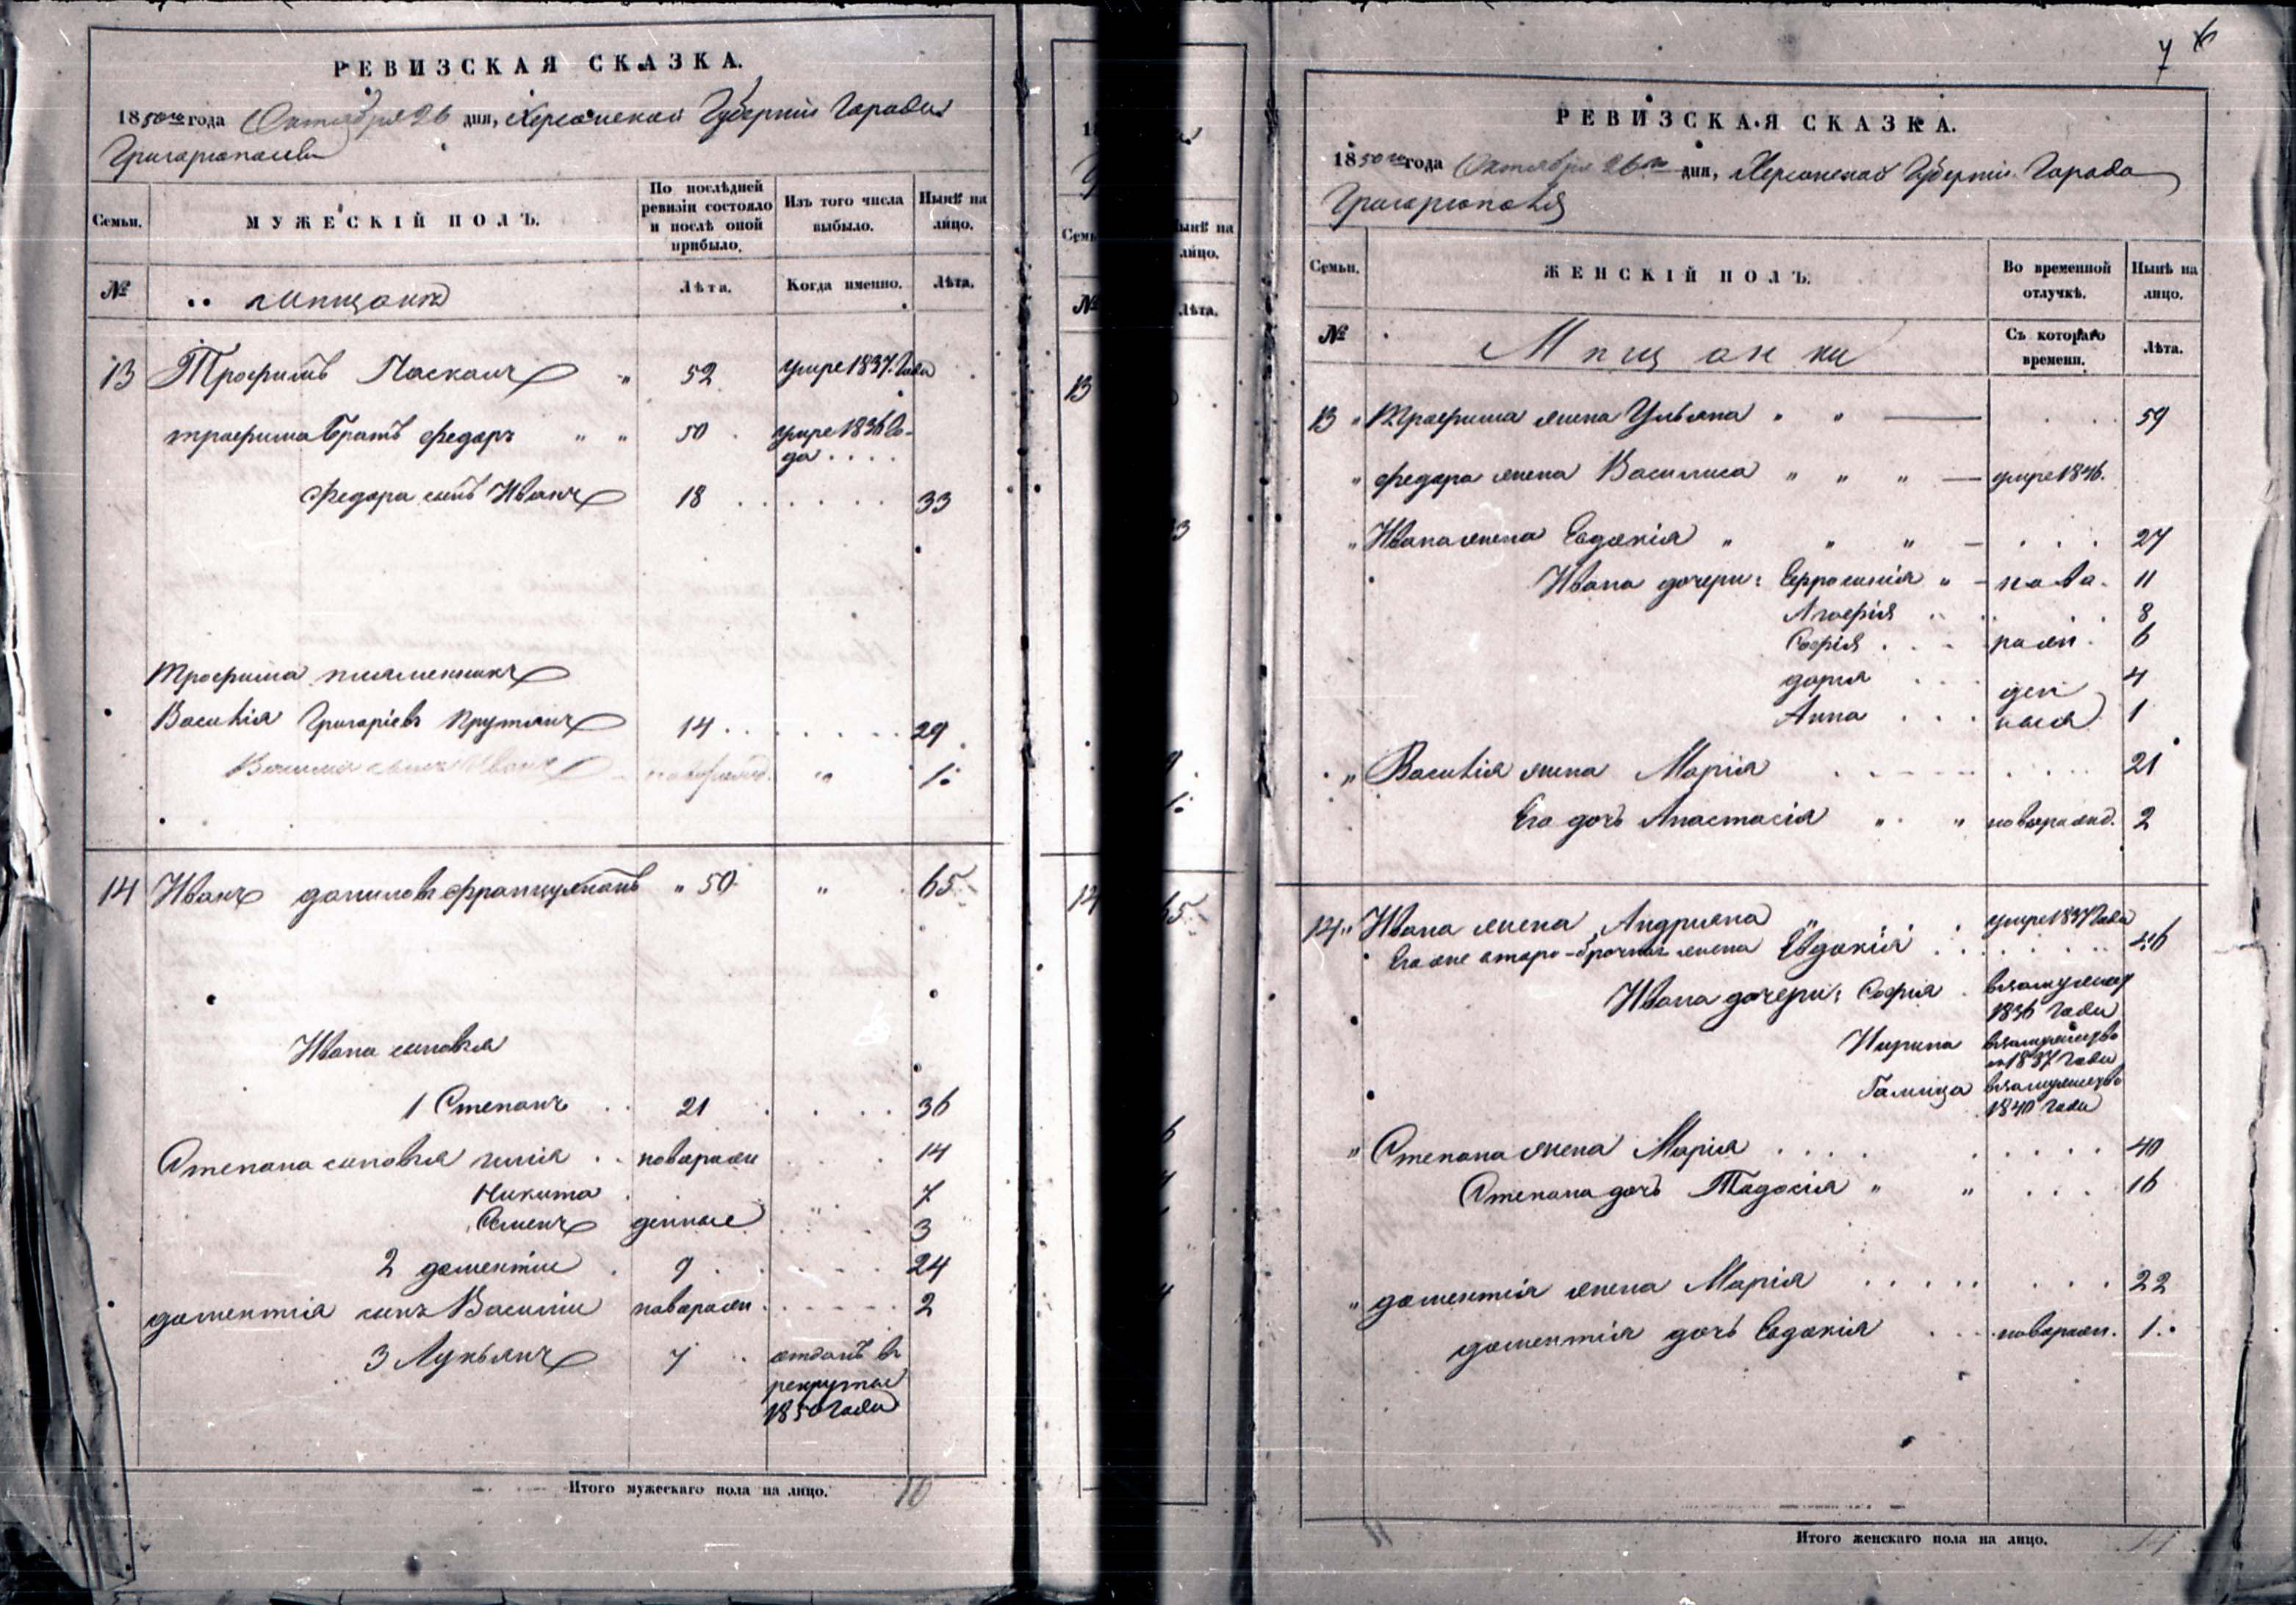 РЕВИЗСКАЯ СКАЗКА.
1850го года Октября 26 дня, Херсонской Губернии Города
Григориополя
Семьи.
МУЖЕСКІЙ ПОЛЪ.
По послѣдней ревизіи состояло и послѣ оной прибыло.
Изъ того числа выбыло.
Нынѣ на лицо.
№
мпщане
Лѣта.
Когда именно.
Лѣта.
13 Трофимъ Паскалъ " 52 умре 1837 Года
трофима братъ федоръ " " 50 умре 1836 Го-
да
федора сынъ Иванъ 18 33
Трофима племенникъ
Василія Григоріевъ Прутянъ 14 29
Василия сынъ Иванъ новорожд. " 1
14 Иванъ даниловъ " 50 " 65
Ивана сыновья
1 Степанъ 21 36
Степана сыновья илиа новорож 14
Никита 7
Семенъ денные " 3
2 дементии 9 24
дементия сынъ Василии новорож 2
3 Лукьянъ 7 отданъ въ
рекруты
1850 Года
Итого мужескаго пола на лицо. 10
7
РЕВИЗСКАЯ СКАЗКА.
1850го года Октября 26го дня, Херсонской Губернии Города
Григориополя
Семьи.
ЖЕНСКІЙ ПОЛЪ.
Во временной отлучкѣ.
Нынѣ на лицо.
№
Мпщанки
Съ котораго времени.
Лѣта.
13 " Трофима жена Ульяна " " 59
" федора жена Василиса " " " умре 1846.
" Ивана жена Евдокія " " " 27
Ивана дочери: Ефросинія " ново 11
Агафія 8
София рожд 6
дария 4
Анна 1
" Василія жена Марія 21
Его дочь Анастасія " " новорожд. 2
14 " Ивана жена Андрияна " умре 1837 Года
Его же второ-брачная жена Евдокія 46
Ивана дочери: София взамужеству
1836 Года
Ирина взамужество
1837 Года
взамужество
1840 Года
" Степана жена Марія 40
Степана дочь Тадосія " " 16
" дементия жена Марія 22
дементия дочь Евдокія новорож. 1
Итого женскаго пола на лицо. 11